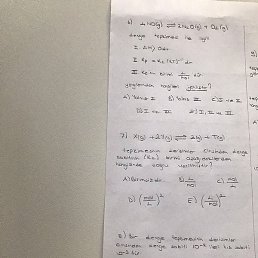 6) 4NO(g) ⇌ 2N₂O(g) + O₂(g)
denge tepkimesi ile ilgili
I.
II.
III.
yargılarından hangileri yanlıştır?
A) Yalnız I B) Yalnız III C) I ve II
D) I ve III E) I, II ve III
7) X(g) + 2Y(g) ⇌ 2Z(g) + T(g)
tepkimesinin derişimler cinsinden denge
sabitinin (Kc) birimi aşağıdakilerden
hangisinde doğru verilmiştir?
A) Birimsizdir B) L/mol C) mol/L
D) (mol/L)² E) (L/mol)²
8) Bir denge tepkimesinin derişimler
cinsinden denge sabiti 10